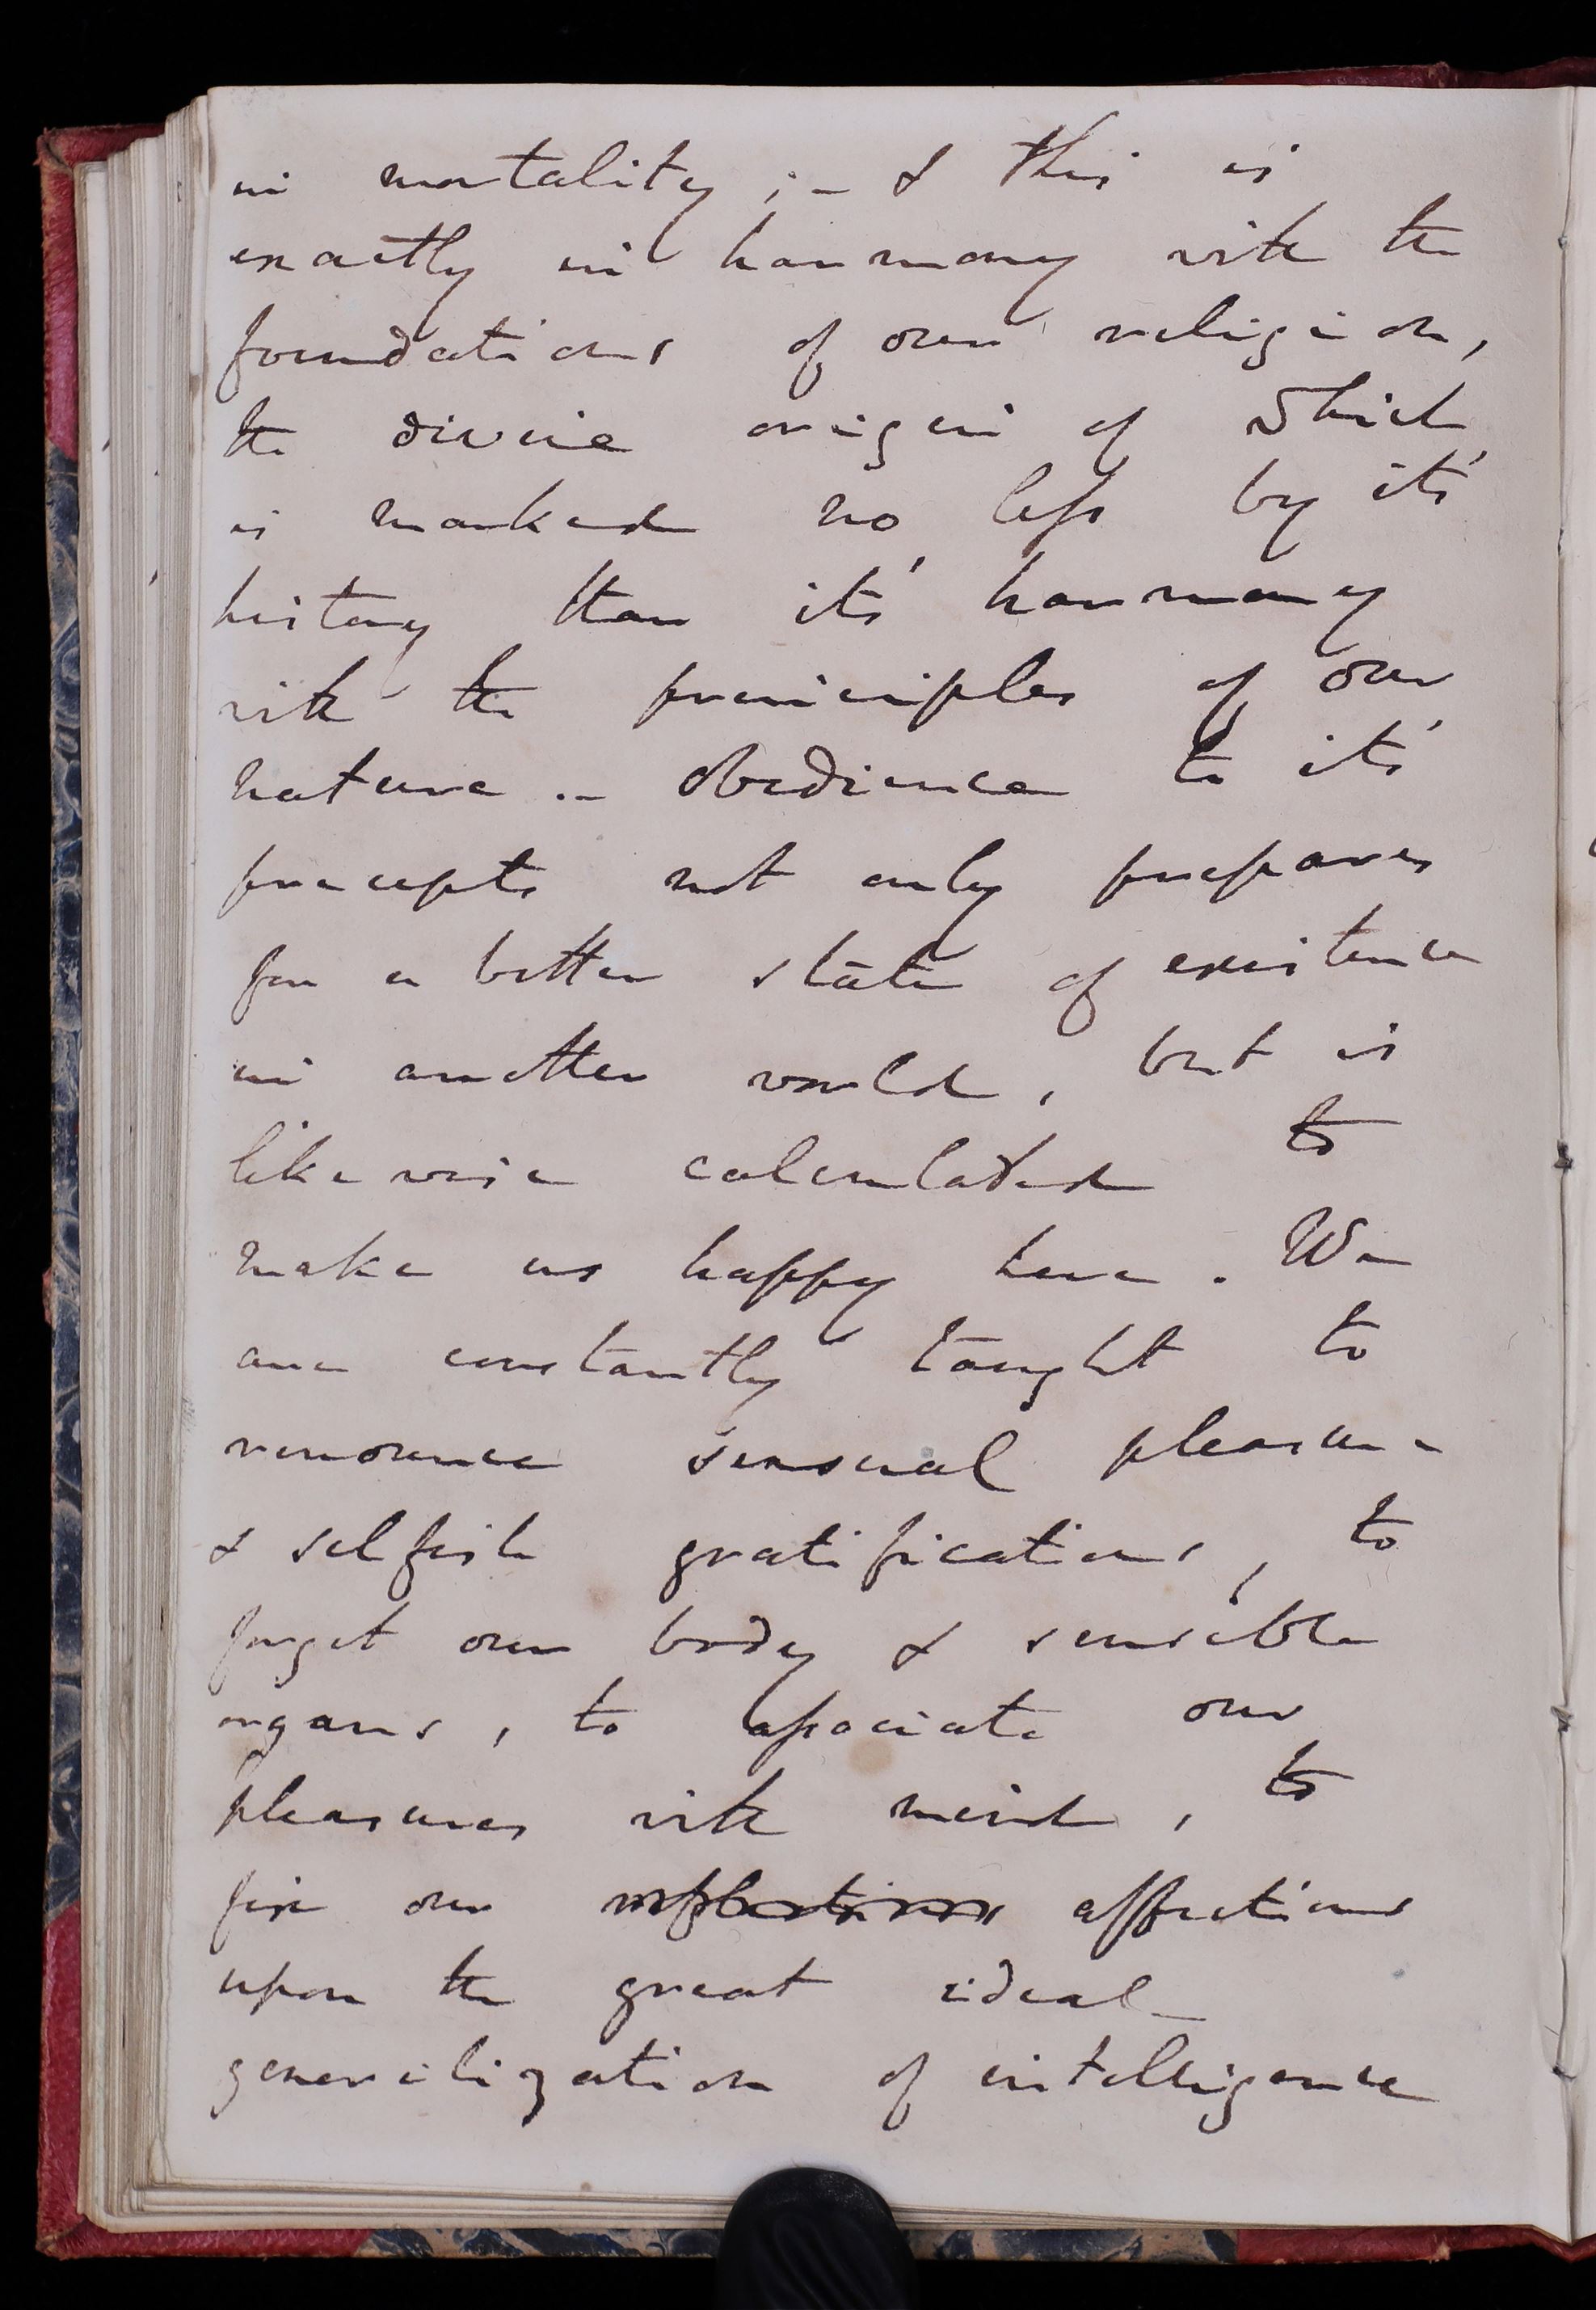 in mortality ;– & this is
exactly in harmony with the
foundations of our religion,
the divine origin of which
is marked no less by it's
history than it's harmony
with the principles of our
nature .– obedience to it's
precepts not only prepares
for a better state of existence
in another world, but is
likewise calculated to
make us happy here. We
are constantly taught to
renounce sensual pleasure
& selfish gratifications, to
forget our body & sensible
organs, to associate our
pleasures with mind, to
fix our reflections affections
upon the great ideal
generilization of intelligence